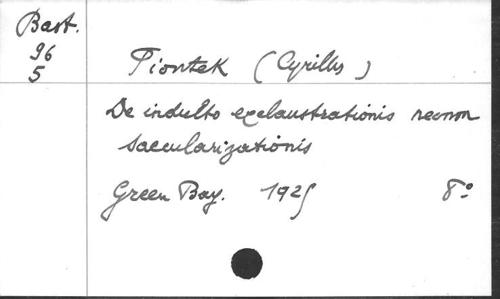 Bast.
96
5
Piontek (Cyrillus)
De indulto exclaustrationis necnon
saecularizationis
Green Bay. 1925 8°